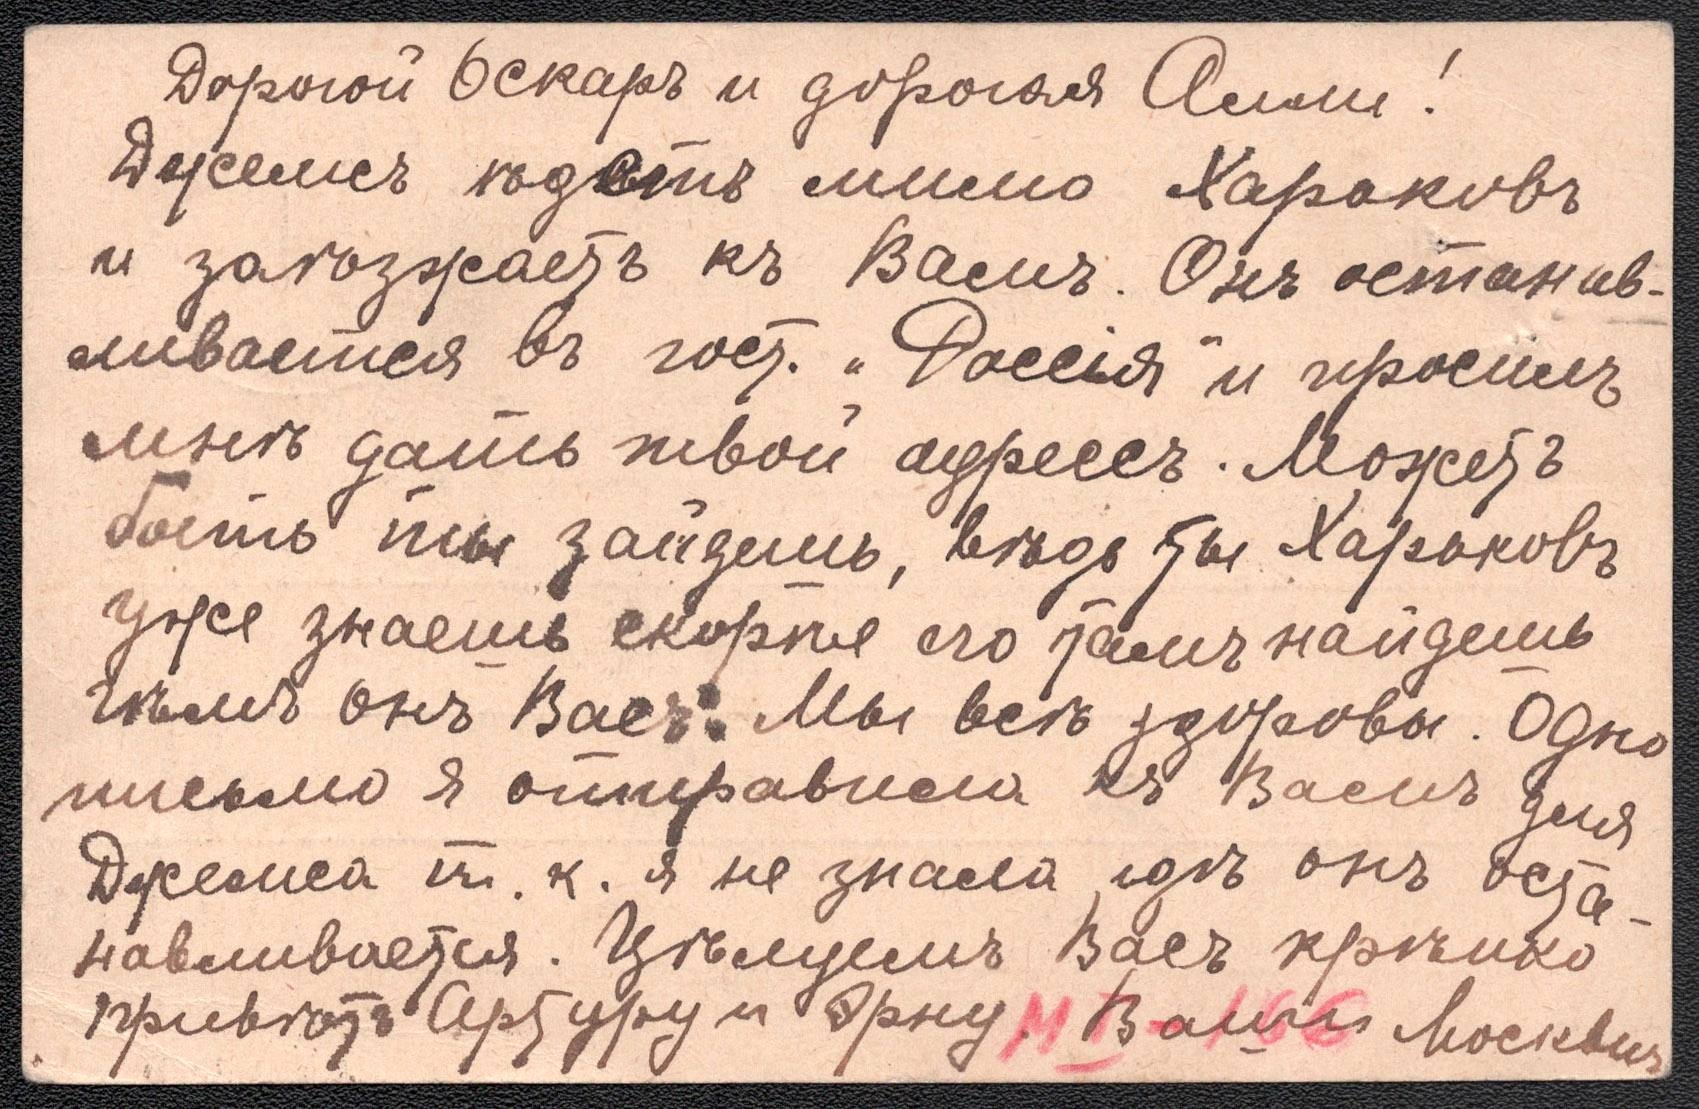 Дорогой Оскаръ и дорогая Алли!
Джемсъ ѣдетъ мимо Харьковъ
и заѣзжаетъ къ Вамъ. Онъ останав-
ливается въ гост. „Россія" и просилъ
мнѣ дать твой адресъ. Можетъ
быть ты зайдешь, вѣдь ты Харьковъ
уже знаешь скорѣе его тамъ найдешь
чѣмъ онъ Васъ. Мы всѣ здоровы. Одно
письмо я отправила къ Вамъ для
Джемса т.к. я не знала гдѣ онъ оста-
навливается. Цѣлуемъ Васъ крѣпко
привѣтъ Артуру и Эрну. Ваши Москвичи
МI-166